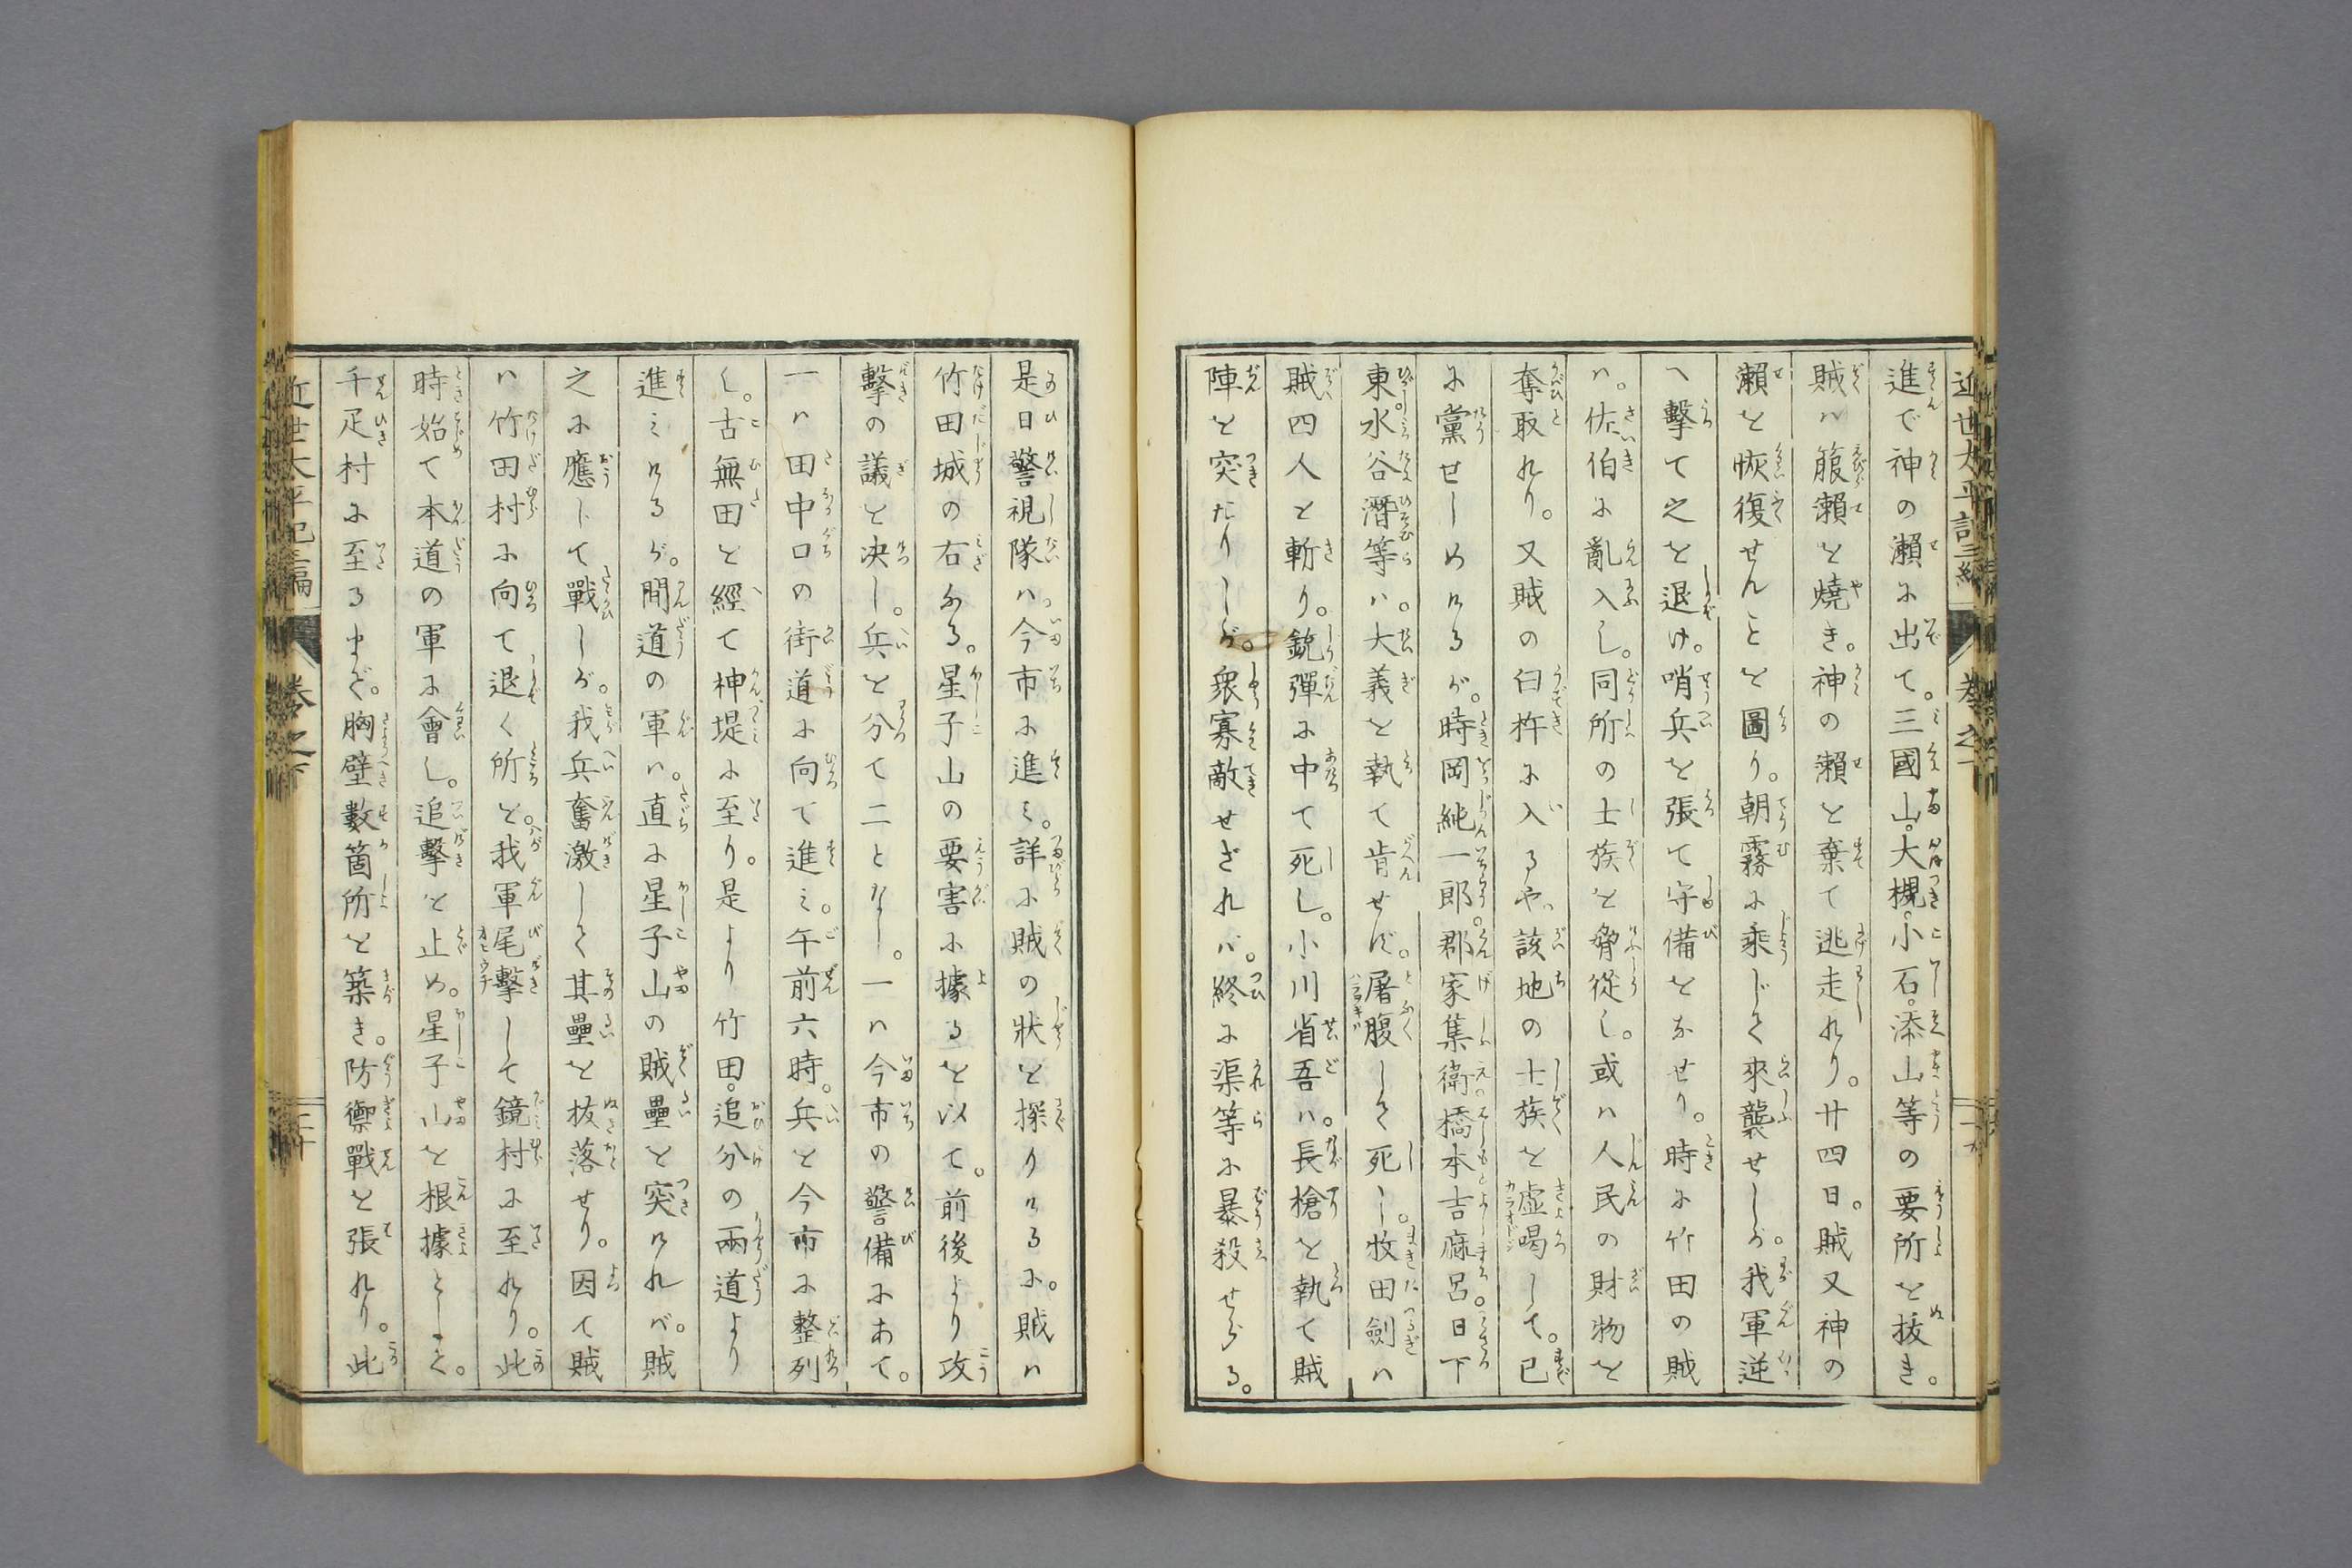 近世太平記三編 卷之下
進で神の瀬に出て。三國山。大槻。小石。添山等の要所を抜き。
賊ハ箙瀬を燒き。神の瀬を棄て逃走れり。廿四日。賊又神の
瀬を恢復せんことを圖り。朝霧に乘じて來襲せしが。我軍逆
へ擊て之を退け。哨兵を張て守備をなせり。時に竹田の賊
ハ。佐伯に亂入し。同所の士族を脅從し。或ハ人民の財物を
奪取れり。又賊の臼杵に入るや。該地の士族を虛喝して。已
に黨せしめけるが。時岡純一郎。郡家集衛。橋本吉麻呂。日下
東。水谷潛等ハ。大義を執て肯せず。屠腹して死し。牧田劍ハ
賊四人を斬り。銃彈に中て死し。小川省吾ハ。長槍を執て賊
陣を突たりしが。衆寡敵せざれバ。終に渠等に暴殺せらる。
是日警視隊ハ。今市に進ミ。詳に賊の狀を探りけるに。賊ハ
竹田城の右なる。星子山の要害に據るを以て。前後より攻
擊の議を決し。兵を分て二となし。一ハ今市の警備にあて。
一ハ田中口の街道に向て進ミ。午前六時。兵を今市に整列
し。古無田を經て神堤に至り。是より竹田。追分の兩道より
進ミけるが。間道の軍ハ。直に星子山の賊壘を突けれバ。賊
之に應じて戰しが。我兵奮激して其壘を抜落せり。因て賊
ハ竹田村に向て退く所を。我軍尾擊して鏡村に至れり。此
時始て本道の軍に會し。追擊を止め。星子山を根據として。
千疋村に至るまで。胸壁數箇所を築き。防禦戰を張れり。此
近世太平記三編 卷之下 二十